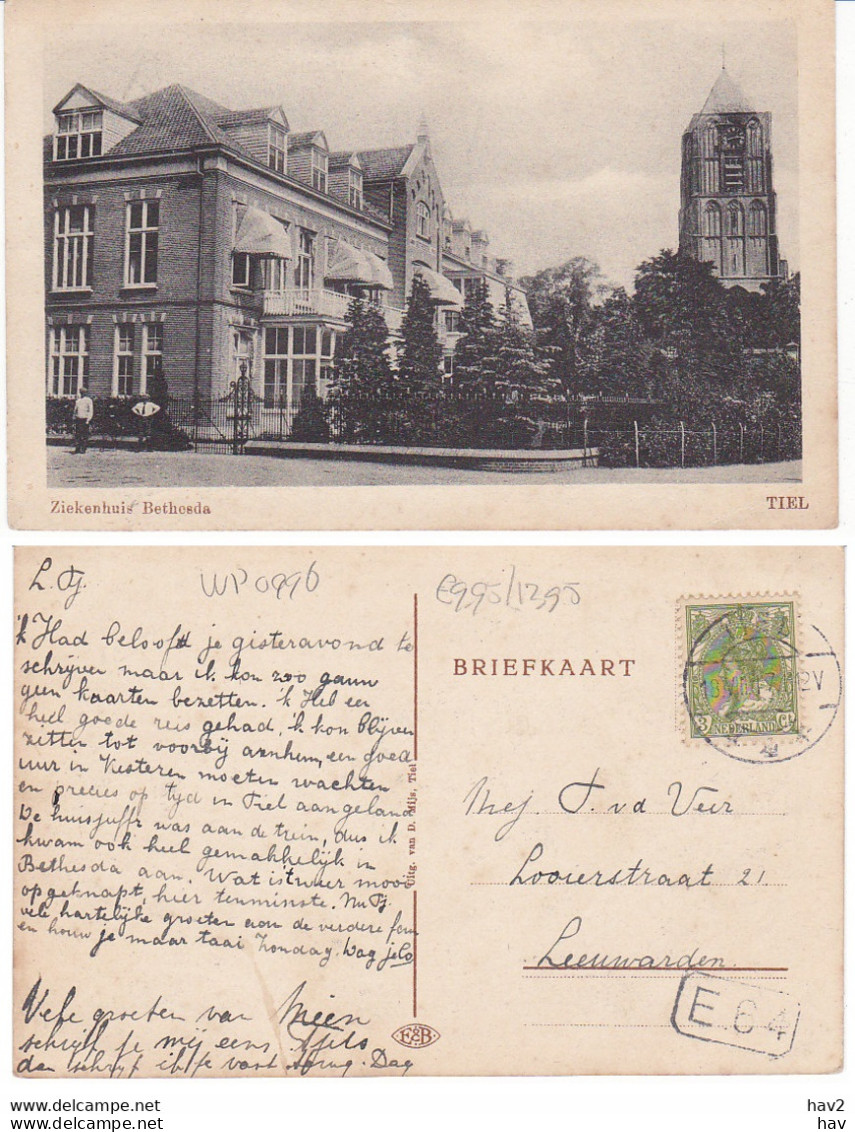 Ziekenhuis Bethesda
TIEL
L. Tj.
WP0996
€9,95/12,95
'k Had beloofd je gisteravond te
schrijven maar ik kon zoo gauw
geen kaarten bezetten. 'k Heb een
heel goede reis gehad, 'k kon blijven
zitten tot voorbij Arnhem, een goed
uur in Kesteren moeten wachten
en precies op tijd in Tiel aangeland
De huisjuffr was aan de trein, dus ik
kwam ook heel gemakkelijk in
Bethesda aan. Wat is 't weer mooi
opgeknapt, hier tenminste. Nu Tj.
vele hartelijke groeten aan de verdere fam
en houw je maar taai Zondag. Dag Jelo
Vele groeten van Mien
schrijf je mij eens
dan schrijf ik je vast terug. Dag
Uitg. van D. Mijs, Tiel
F&B
BRIEFKAART
3 Ct
NEDERLAND
2V
Mej. T. v d Veer
Looierstraat 21
Leeuwarden
E 64
hav2
hav